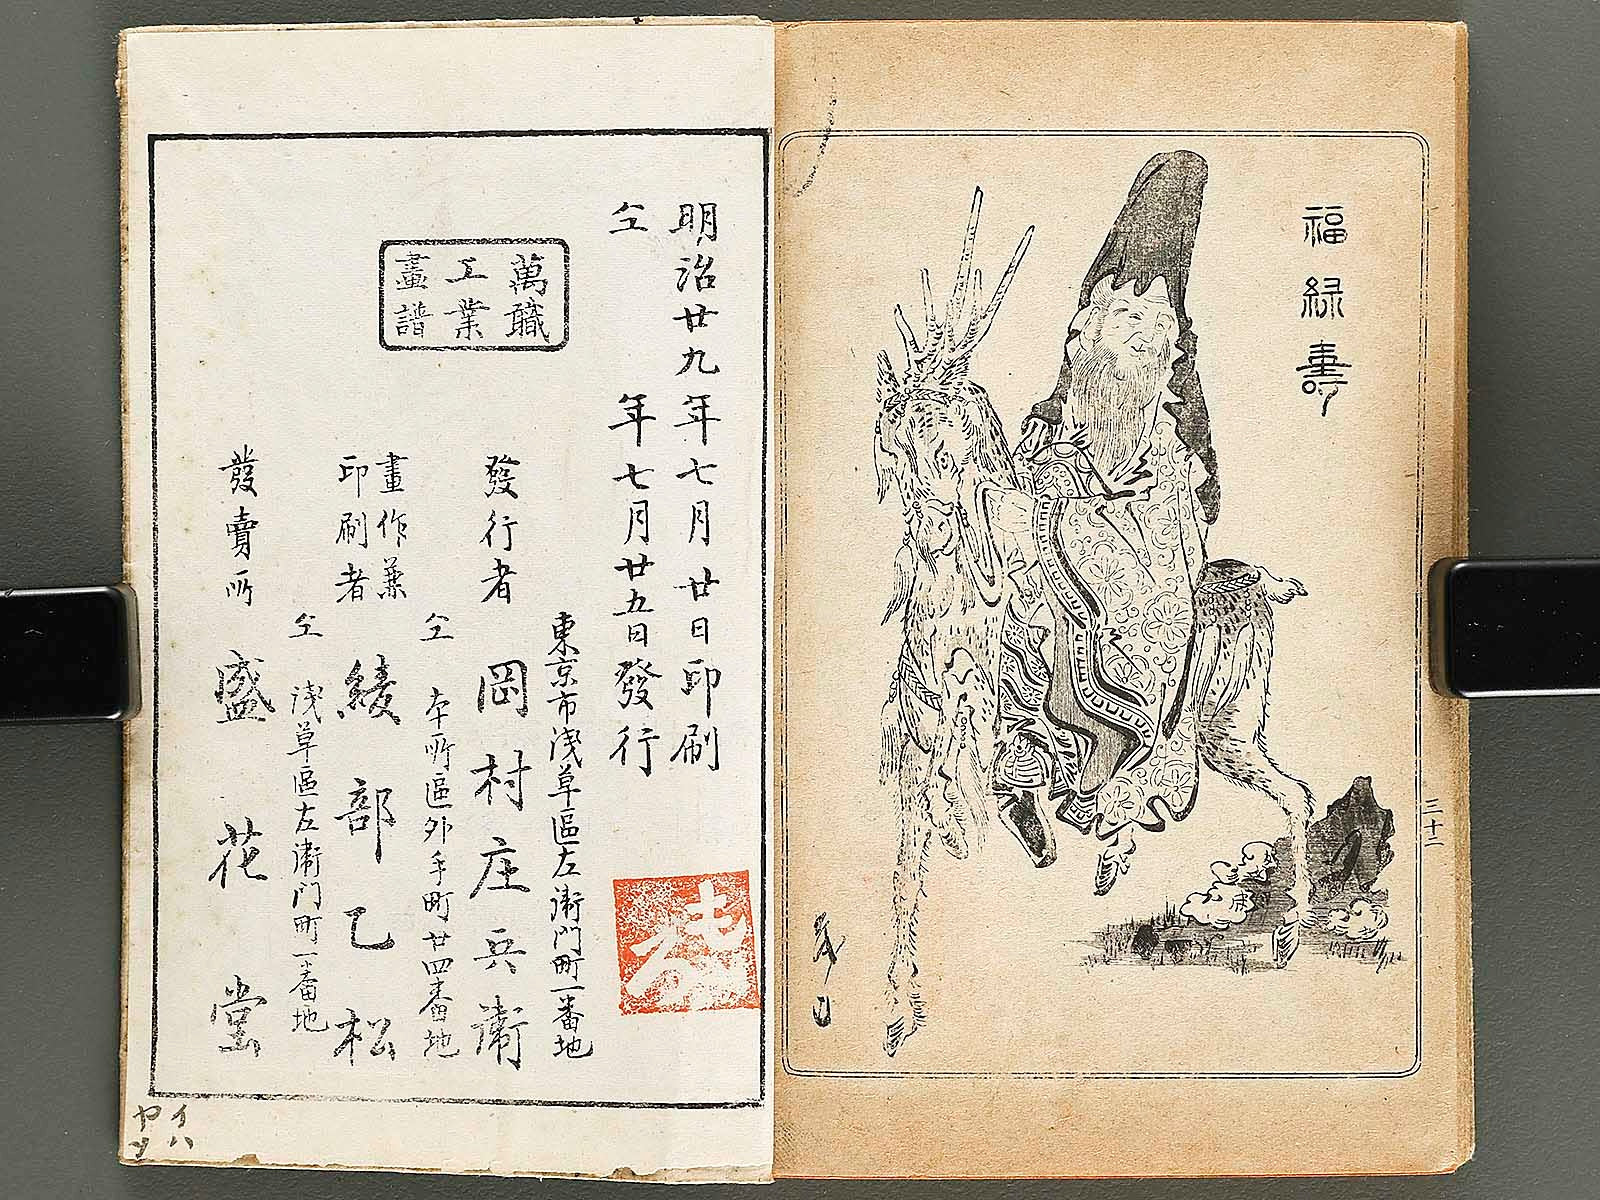 福緑壽
三十二
明治廿九年七月廿日印刷
仝年七月廿五日發行
萬職
工業
畫譜
東京市浅草區左衛門町一番地
發行者 岡村庄兵衛
仝 本所區外手町廿四番地
畫作兼
印刷者 綾部乙松
仝 浅草區左衛門町一番地
發賣所 盛花堂
イハ
ヤツ